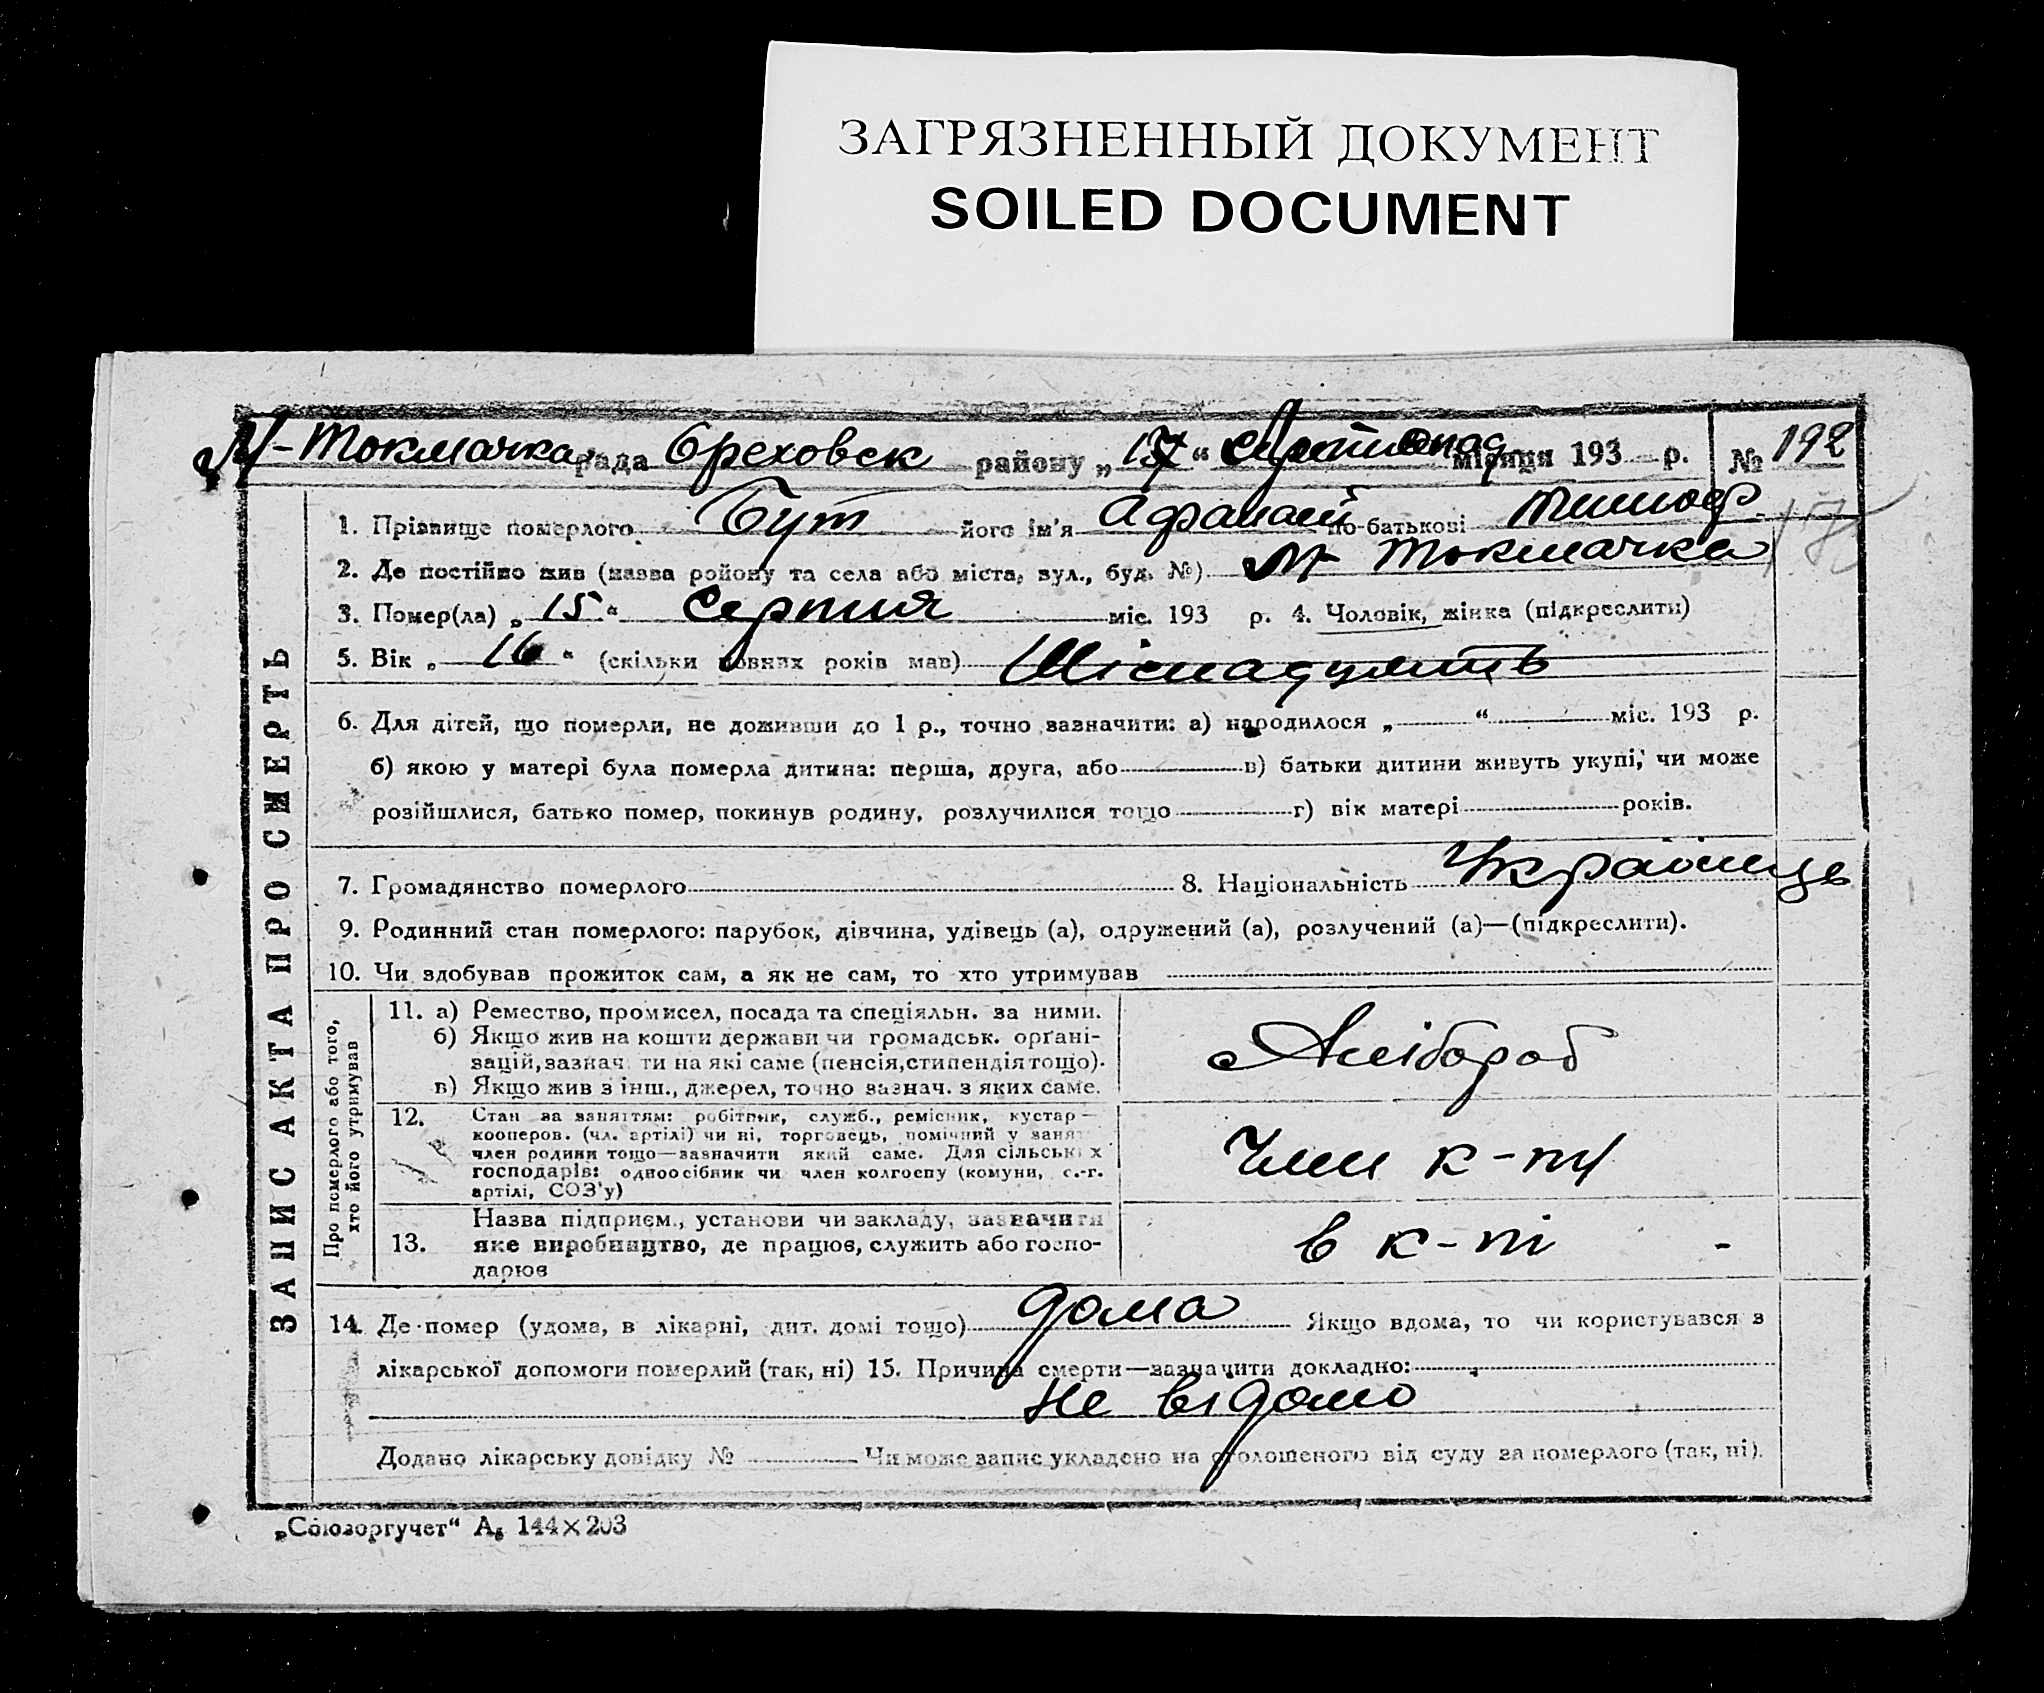 ЗАГРЯЗНЕННЫЙ ДОКУМЕНТ
SOILED DOCUMENT
М-Токмачка рада Ореховск району „17“ місяця 193 р. № 192
1. Прізвище померлого Бут його ім'я Афанасій по-батькові Тимоф.
2. Де постійно жив (назва району та села або міста, вул., буд. №) М Токмачка
3. Помер(ла) „15“ Серпня міс. 193 р. 4. Чоловік, жінка (підкреслити)
5. Вік „16“ (скільки повних років мав) Шіснадцять
6. Для дітей, що померли, не доживши до 1 р., точно зазначити: а) народилося „ “ міс. 193 р.
б) якою у матері була померла дитина: перша, друга, або в) батьки дитини живуть укупі, чи може
розійшлися, батько помер, покинув родину, розлучилися тощо г) вік матері років.
7. Громадянство померлого 8. Національність Українець
9. Родинний стан померлого: парубок, дівчина, удівець (а), одружений (а), розлучений (а)—(підкреслити).
10. Чи здобував прожиток сам, а як не сам, то хто утримував
ЗАПИС АКТА ПРО СМЕРТЬ
Про померлого або того,
хто його утримував
11. а) Ремество, промисел, посада та спеціяльн. за ними.
б) Якщо жив на кошти держави чи громадськ. орґані-
зацій, зазнач ти на які саме (пенсія, стипендія тощо).
в) Якщо жив з інш., джерел, точно зазнач. з яких саме.
Хлібороб
12. Стан за заняттям: робітник, служб., ремісник, кустар—
кооперов. (чл. артілі) чи ні, торговець, помічний у занят
член родини тощо—зазначити який саме. Для сільськ х
господарів: одноосібник чи член колгоспу (комуни, с.-г.
артілі, СОЗ'у)
Член к-ту
13. Назва підприєм., установи чи закладу, зазначити
яке виробництво, де працює, служить або госпо-
дарює
в к-ті -
14. Де помер (удома, в лікарні, дит. домі тощо) дома Якщо вдома, то чи користувався з
лікарської допомоги померлий (так, ні) 15. Причина смерти—зазначити докладно:
не відомо
Додано лікарську довідку № Чи може запис укладено на оголошеного від суду за померлого (так, ні).
„Союзоргучет“ А₆ 144×203